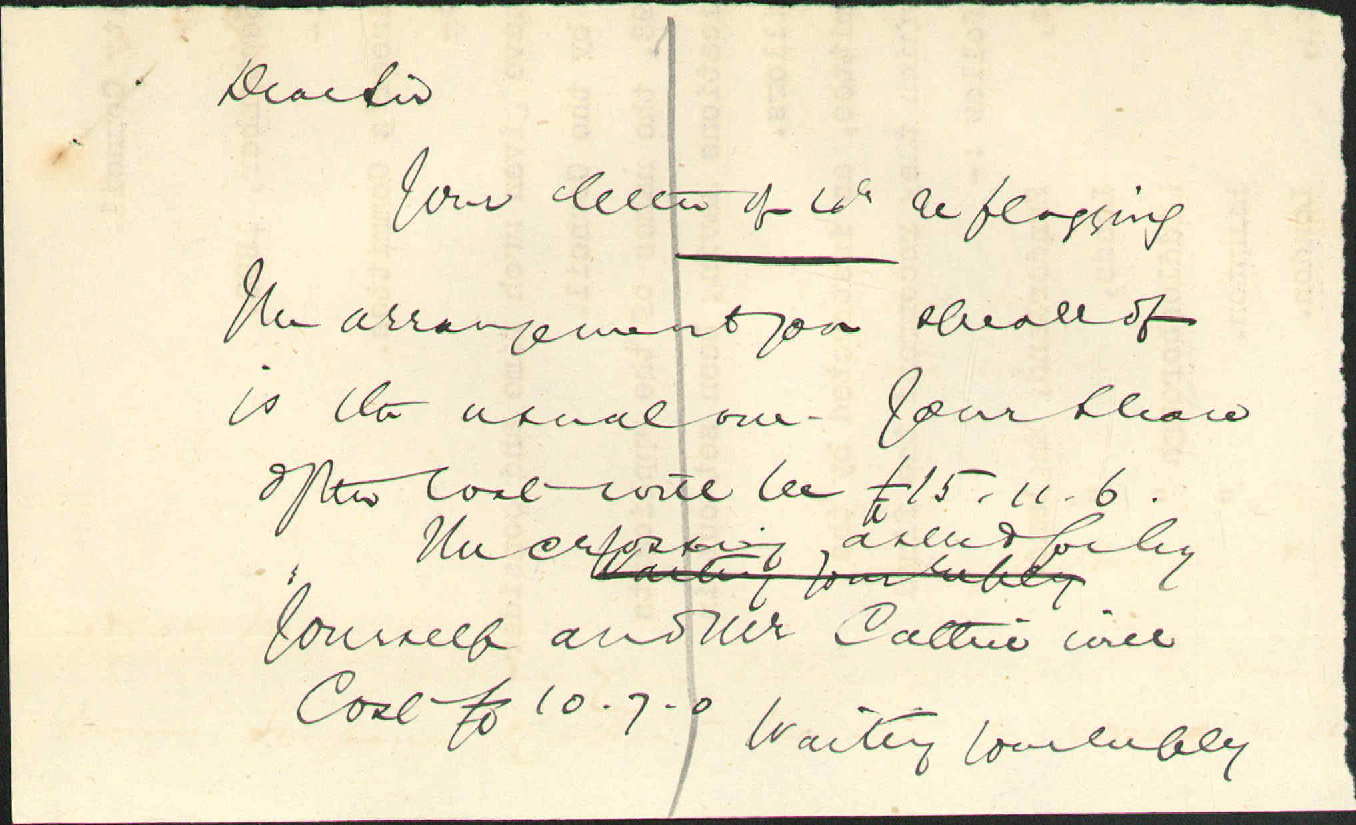 Dear Sir
Your letter of 10th re flagging
The arrangement you speak of
is the usual one - Your share
of the cost will be £15-11-6.
The crossing asked for by
Waiting your reply
Yourself and Mr Cattie will
Cost £10-7-0 Waiting your reply